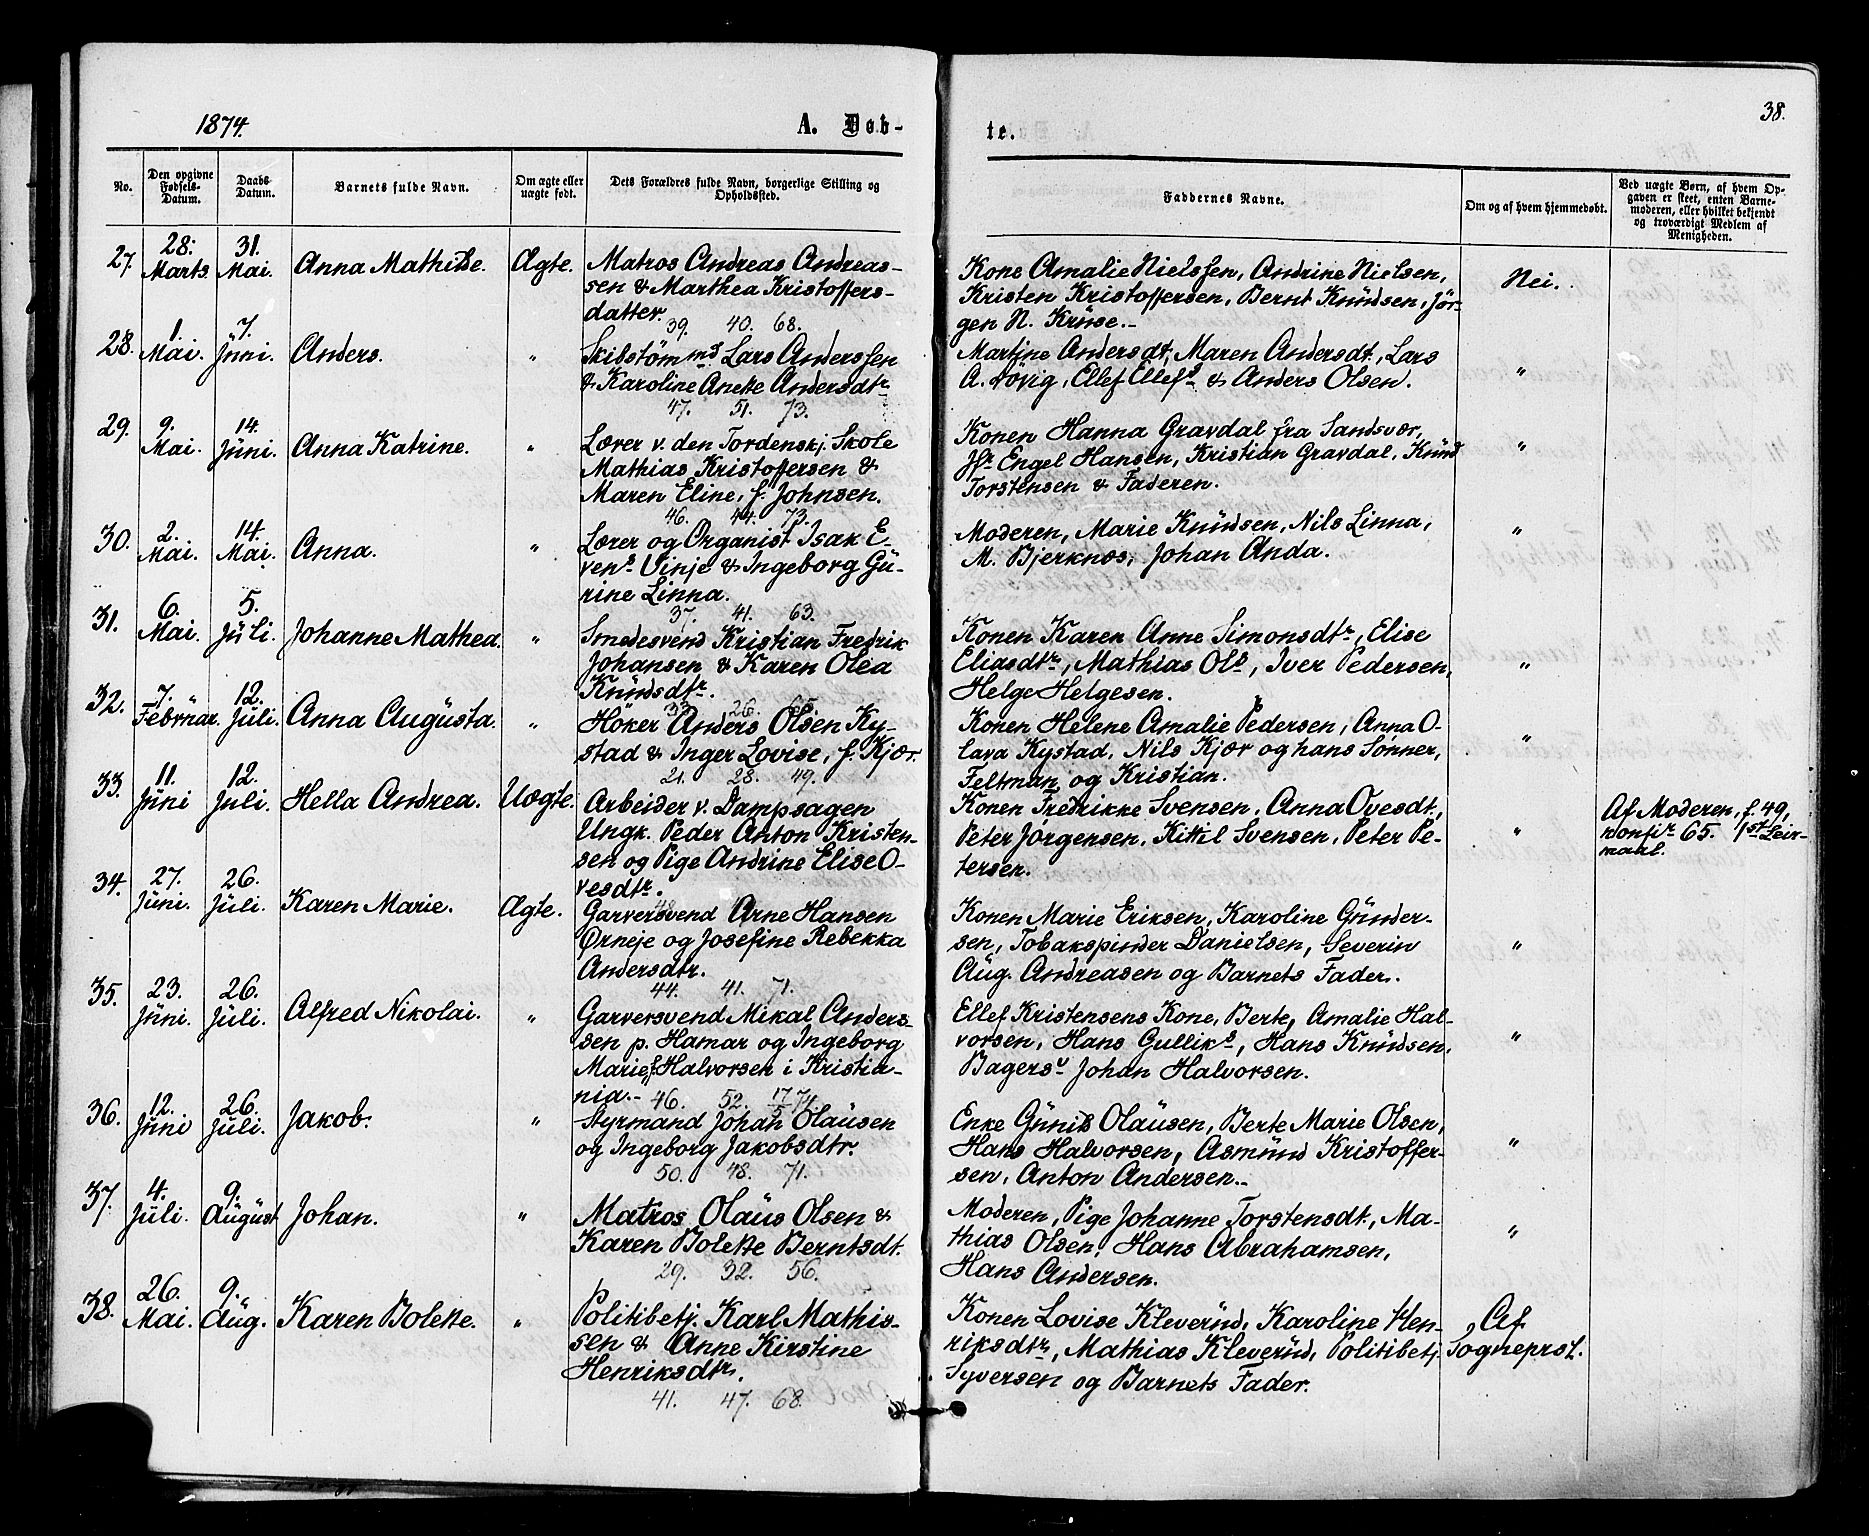 1874.
A. Døb-
te.
38.
No.
Den opgivne Fødsels-Datum.
Daabs Datum.
Barnets fulde Navn.
Om ægte eller uægte født.
Dets Forældres fulde Navn, borgerlige Stilling og Opholdssted.
Faddernes Navne.
Om og af hvem hjemmedøbt.
Ved uægte Børn, af hvem Op-
gaven er skeet, enten Barne-
moderen, eller hvilket bekjendt
og troværdigt Medlem af
Menigheden.
27. 28: Marts. 31. Mai. Anna Mathilde. Ægte.
Matros Andreas Andreas-
sen & Marthea Kristoffers-
datter.
39. 40. 68.
Kone Amalie Nielssen, Andrine Nielsen,
Kristen Kristoffersen, Bernt Knudsen, Jør-
gen N. Kruse.-
Nei.
28. 1. Mai. 7. Juni. Anders. "
Skibstømmd. Lars Anderssen
& Karoline Anette Andersdtr
47. 51. 73.
Martine Andersdt, Maren Andersdt., Lars
A. Røvig, Ellef Ellefs & Anders Olsen.
"
29. 9. Mai. 14. Juni. Anna Katrine. "
Lærer v. den Tordenskj. Skole
Mathias Kristoffersen &
Maren Eline, f. Johnsen.
46. 44. 73.
Konen Hanna Gravdal fra Sandsvær,
Jfr Engel Hansen, Kristian Gravdal, Knud
Torstensen & Faderen.
"
30. 2. Mai. 14. Mai. Anna. "
Lærer og Organist Isak E-
vens Vinje & Ingeborg Gu-
rine Linna.
37. 41. 63.
Moderen, Marie Knudsen, Nils Linna,
M. Bjerknæs, Johan Anda.
"
31. 6. Mai. 5. Juli. Johanne Mathea. "
Smedesvend Kristian Fredrik
Johansen & Karen Olea
Knudsdtr.
26. 65.
Konen Karen Anne Simonsdtr, Elise
Eliasdtr, Mathias Ols, Iver Pedersen,
Helge Helgesen.
"
32. 7. Februar. 12. Juli. Anna Augusta. "
Høker Anders Olsen Ky-
stad & Inger Lovise, f. Kjær.
21. 28. 49.
Konen Helene Amalie Pedersen, Anna O-
lava Kystad, Nils Kjær og hans Sønner,
Feltman og Kristian.
"
33. 11. Juni 12. Juli. Hella Andrea. Uægte.
Arbeider v. Dampsagen
Ungk. Peder Anton Kristen-
sen og Pige Andrine Elise O-
vesdtr.
Konen Fredrikke Svensen, Anna Ovesdt.,
Peter Jørgensen, Kittil Svensen, Peter Pe-
tersen.
"
Af Moderen, f. 49,
konfir 65. 1st Leir-
maal.
34. 27. Juni. 26. Juli. Karen Marie. Ægte.
Garversvend Arne Hansen
Ørneje og Josefine Rebekka
Andersdtr.
44. 41. 71.
Konen Marie Eriksen, Karoline Gunder-
sen, Tobakspinder Danielsen, Severin
Aug. Andreasen og Barnets Fader.
"
35. 23. Juni. 26. Juli. Alfred Nikolai. "
Garversvend Mikal Anders-
sen p. Hamar og Ingeborg
Marie f. Halvorsen i Kristia-
nia.-
46. 52. 17/5 71.
Ellef Kristensens Kone, Berte, Amalie Hal-
vorsen, Hans Gulliks, Hans Knudsen,
Bagersv Johan Halvorsen.
"
36. 12. Juni 26. Juli. Jakob. "
Styrmand Johan Olausen
og Ingeborg Jakobsdtr.
50. 48. 71.
Enke Gunild Olausen, Berte Marie Olsen,
Hans Halvorsen, Asmund Kristoffer-
sen, Anton Andersen.-
"
37. 4. Juli. 9. August Johan. "
Matros Olaus Olsen &
Karen Bolette Berntsdt.
29. 32. 56.
Moderen, Pige Johanne Torstensdt., Ma-
thias Olsen, Hans Abrahamsen,
Hans Andersen.
"
38. 26. Mai. 9. Aug. Karen Bolette. "
Politibetj. Karl Mathis-
sen & Anne Kirstine
Henriksdtr.
41. 47. 68.
Konen Lovise Kleverud, Karoline Hen-
riksdtr, Mathias Kleverud, Politibetj.
Syversen og Barnets Fader.
Af
Sogneprst.